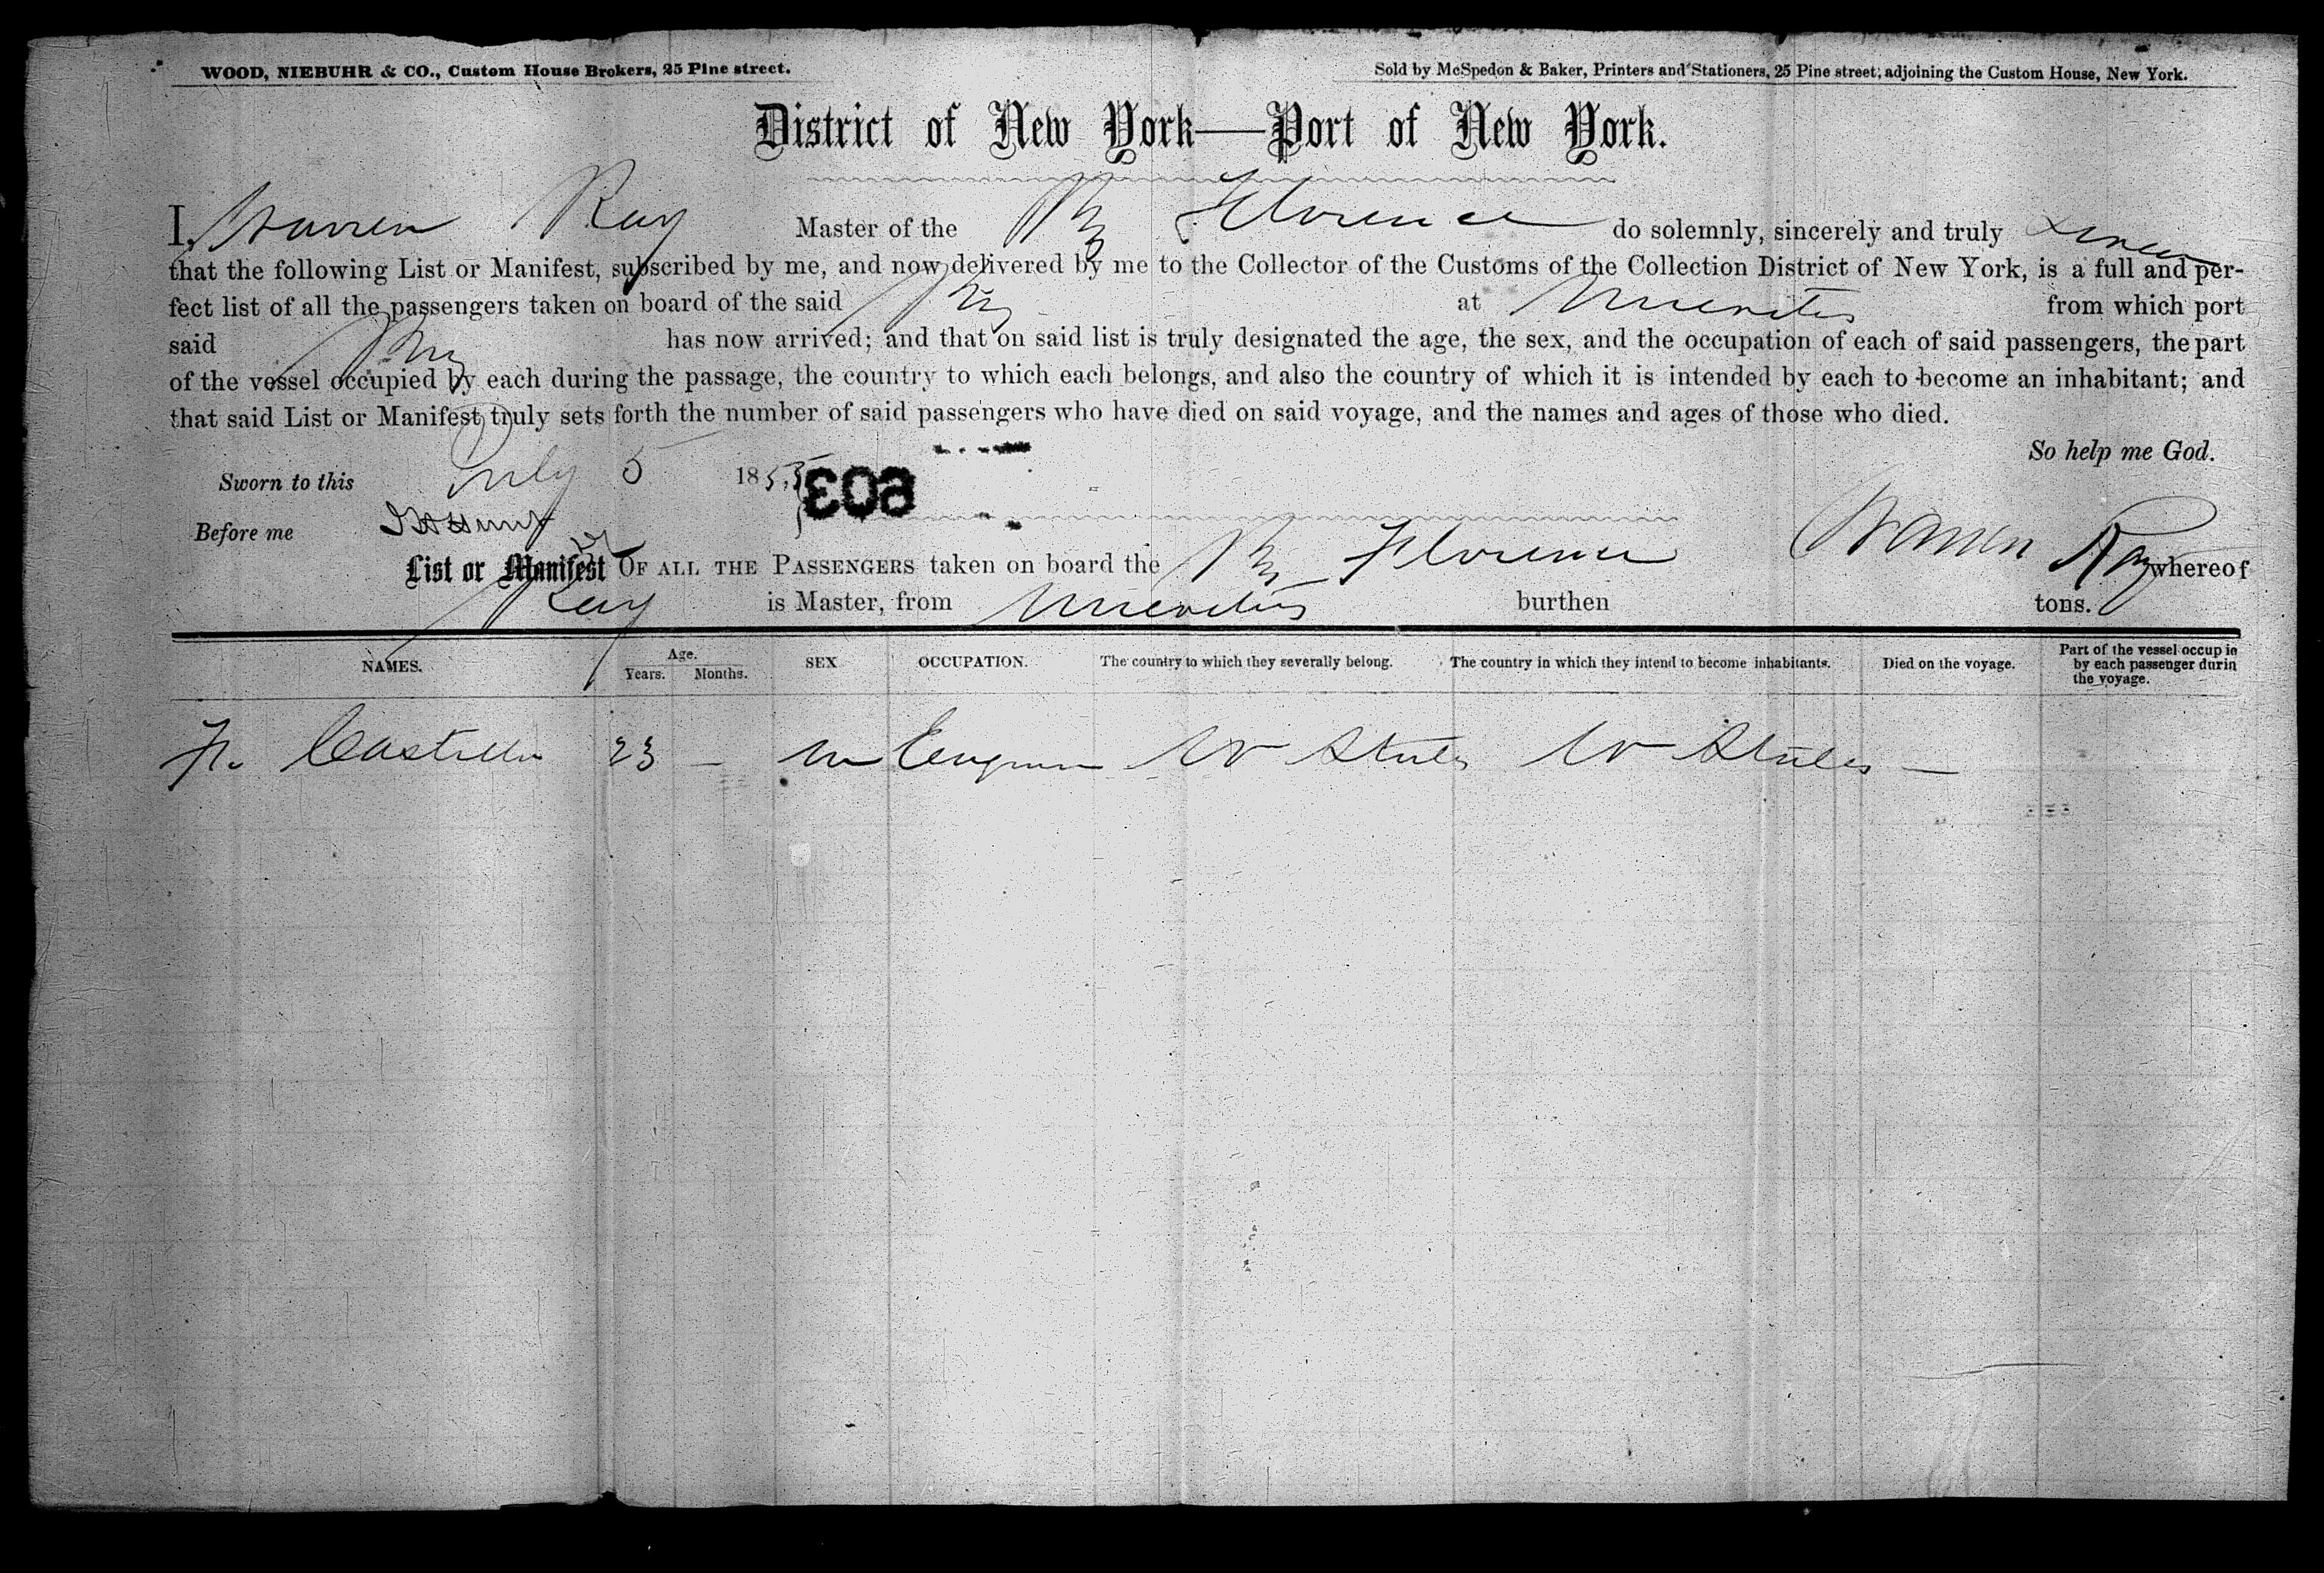 WOOD, NIEBUHR & CO., Custom House Brokers, 25 Pine street.
Sold by McSpedon & Baker, Printers and Stationers, 25 Pine street, adjoining the Custom House, New York.
District of New York—Port of New York.
I, Warren Ray Master of the Brig Florence do solemnly, sincerely and truly swear
that the following List or Manifest, subscribed by me, and now delivered by me to the Collector of the Customs of the Collection District of New York, is a full and per-
fect list of all the passengers taken on board of the said Brig at Nuevitas from which port
said Brig has now arrived; and that on said list is truly designated the age, the sex, and the occupation of each of said passengers, the part
of the vessel occupied by each during the passage, the country to which each belongs, and also the country of which it is intended by each to become an inhabitant; and
that said List or Manifest truly sets forth the number of said passengers who have died on said voyage, and the names and ages of those who died.
So help me God.
Sworn to this July 5 1855
603
Before me
Warren Ray
List or Manifest OF ALL THE PASSENGERS taken on board the Brig Florence whereof
Ray is Master, from Nuevitas burthen tons.
NAMES. Age. Years. Months. SEX OCCUPATION. The country to which they severally belong. The country in which they intend to become inhabitants. Died on the voyage. Part of the vessel occup ie by each passenger durin the voyage.
F. Castillo 23 — m Engineer U States U States —